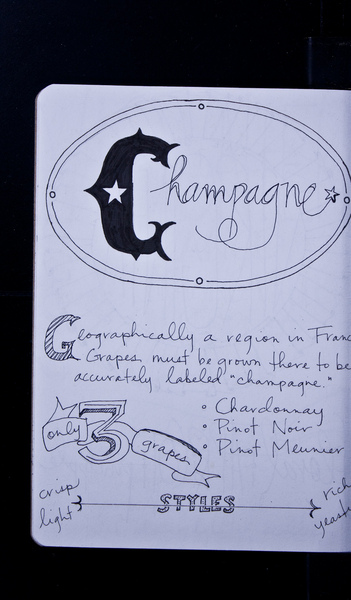 Champagne
Geographically a region in Franc
Grapes must be grown there to be
accurately labeled "champagne."
only 3 grapes
• Chardonnay
• Pinot Noir
• Pinot Meunier
crisp
light
STYLES
rich
yeasty